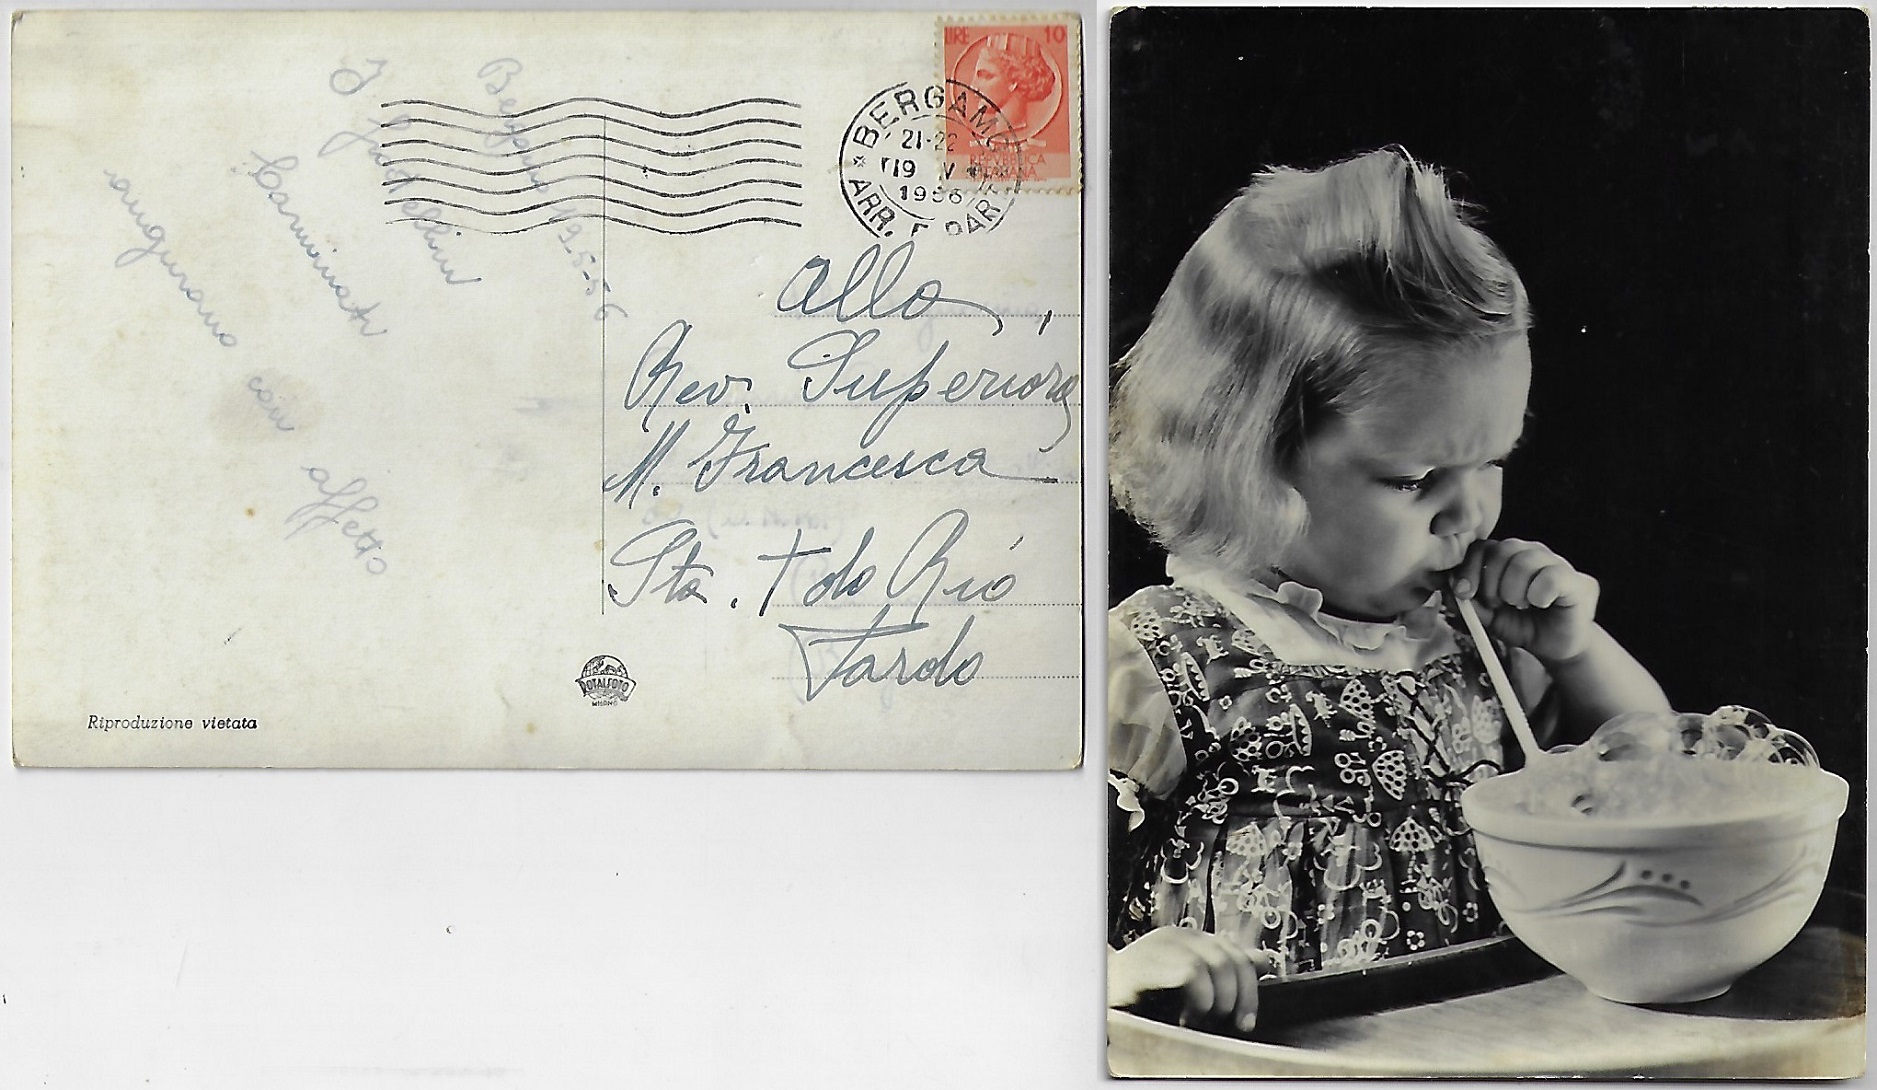 LIRE 10
REPVBBLICA
ITALIANA
BERGAMO
21-22
19 V
1956
ARR. E PAR
Bergamo 19-5-56
I
Carminati
augurano con affetto
Alla
Rev. Superiora
M. Francesca
Sta. † do Rio
Pardo
ROTALFOTO
MILANO
Riproduzione vietata